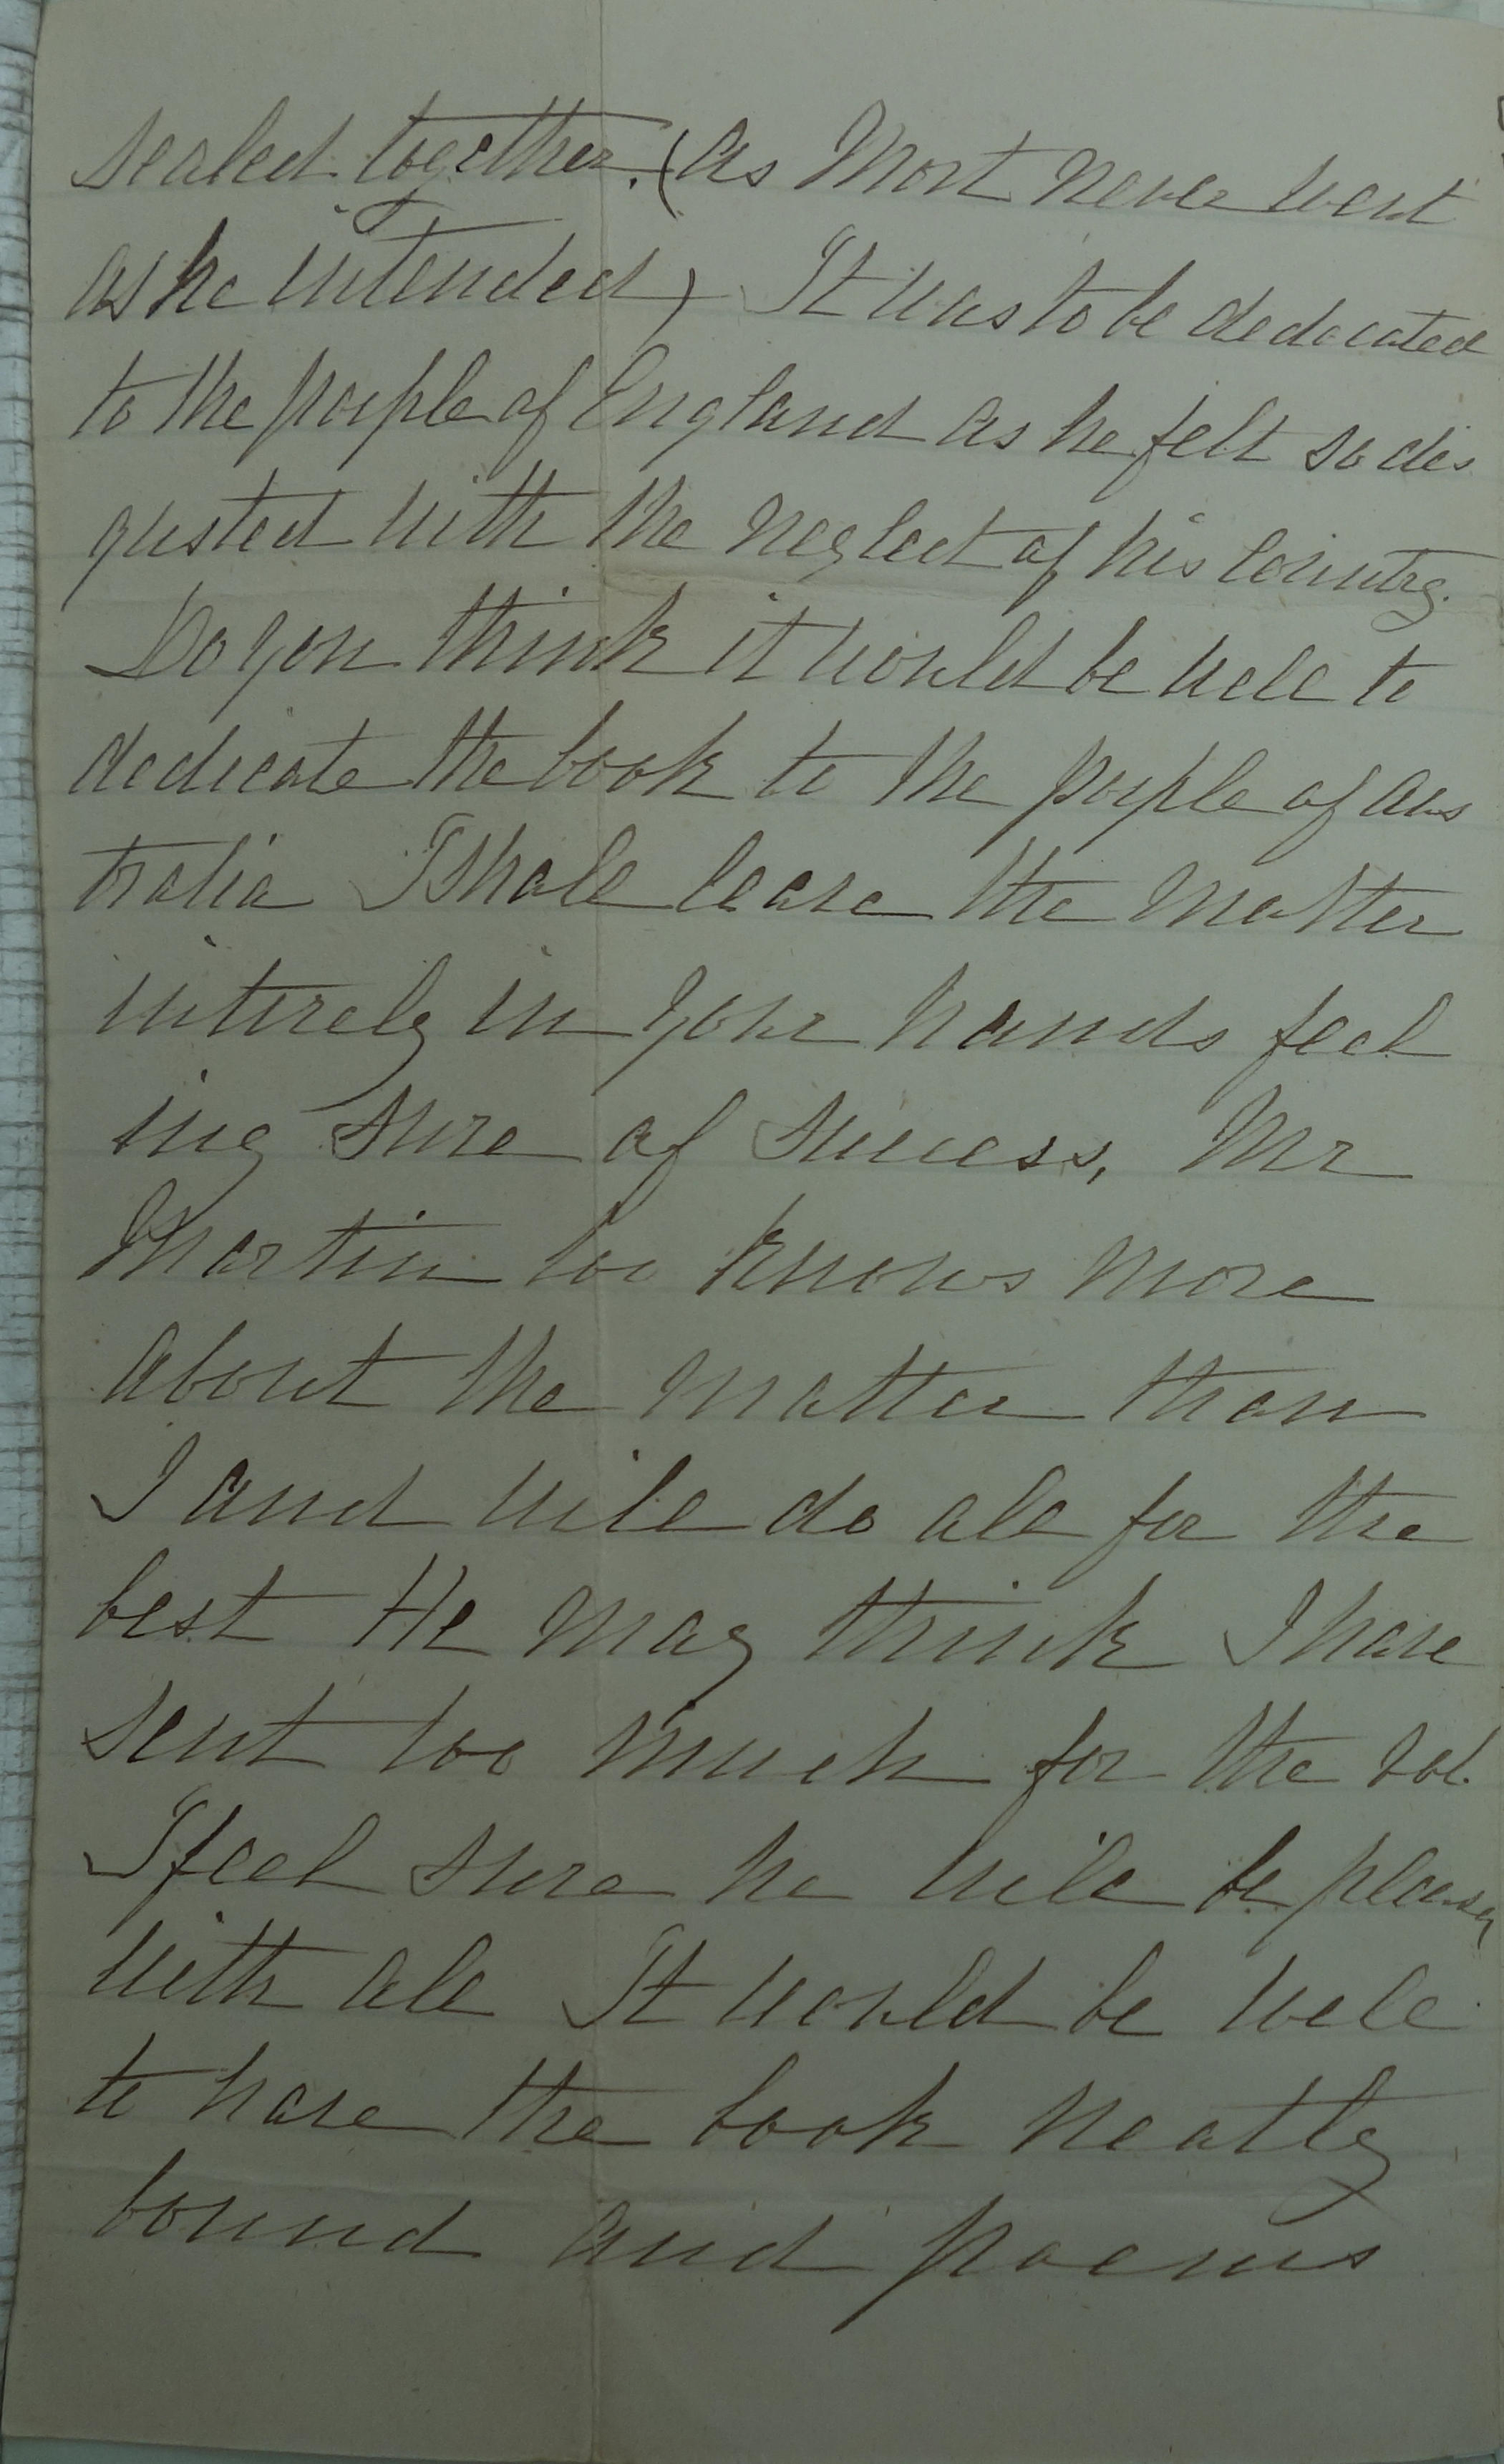 sealed together. (as Mort never went
as he intended) It was to be dedocated
to the people of England as he felt so dis
gusted with the neglect of his Country.
Do you think it would be well to
dedicate the book to the people of Aus
tralia I shall leave the matter
intirely in your hands feel
ing sure of success, Mr
Martin too knows more
about the matter than
I and will do all for the
best He may think I have
sent too much for the vol.
I feel sure he will be pleased
with all It would be well
to have the book neatly
bound and poems